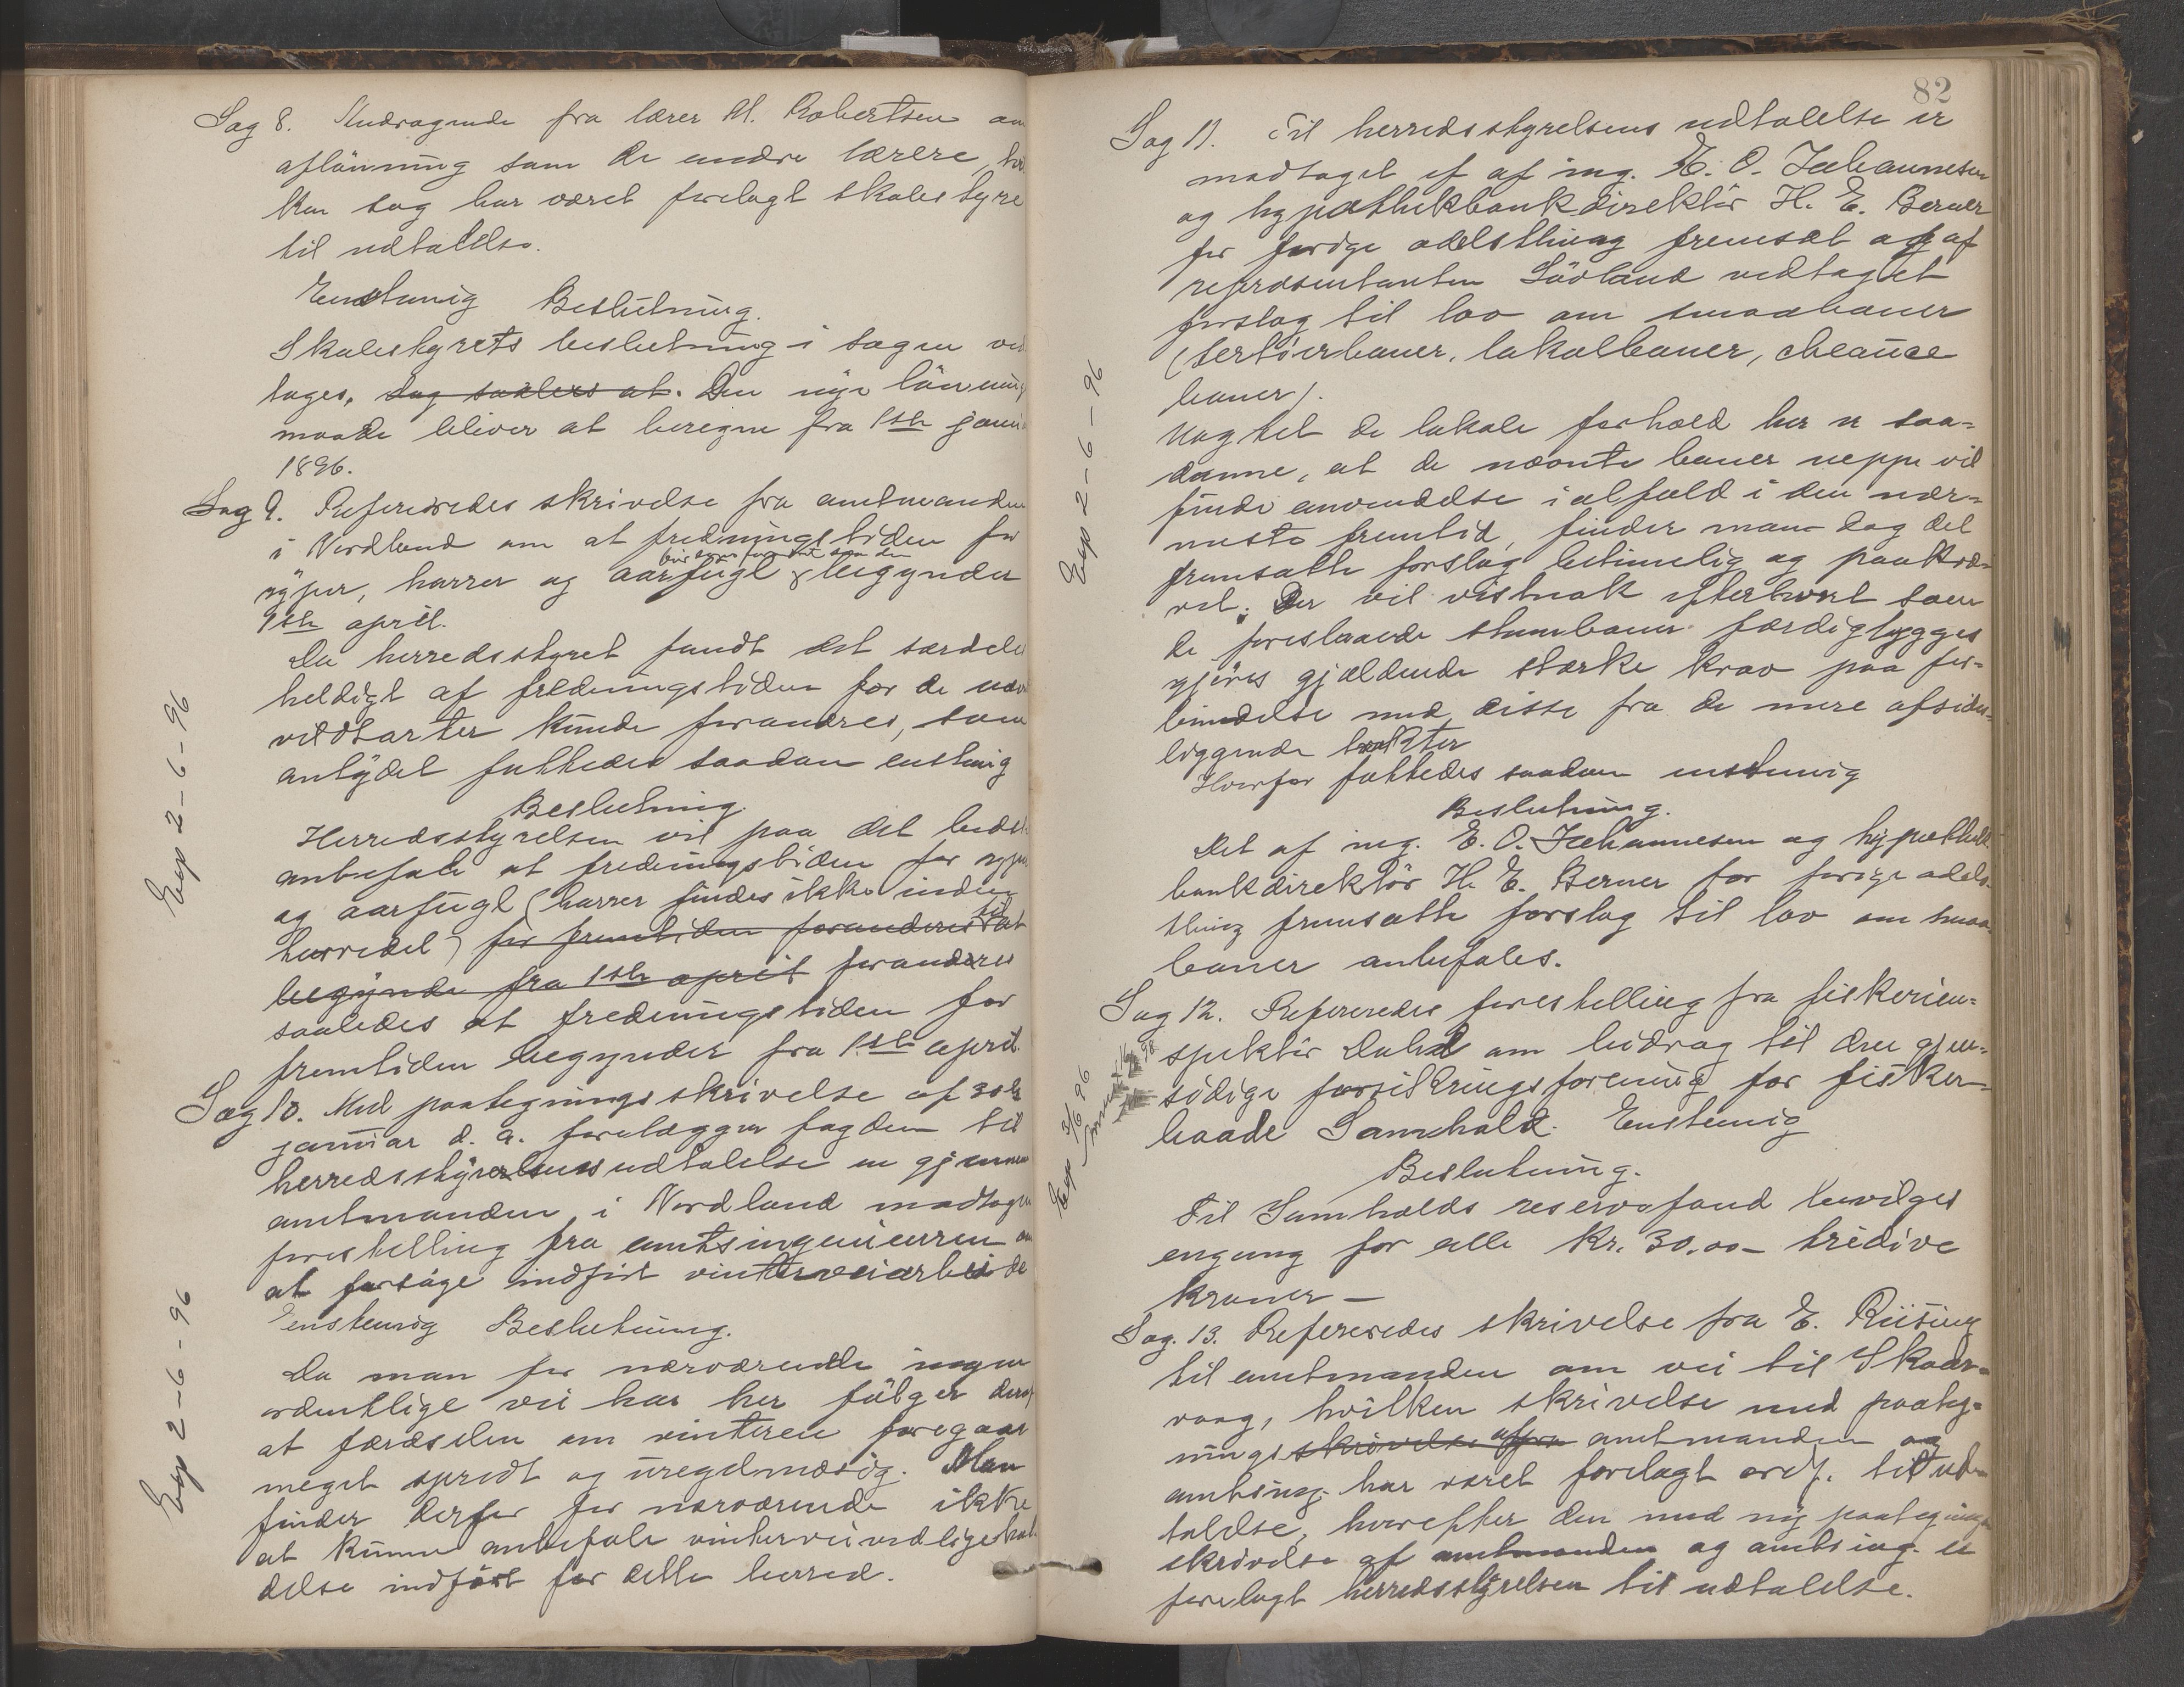 Sag 8. Andragende fra lærer M. Robertsen om
aflönning som de andre lærere,
ken sag har været forelagt skolestyre
til udtalelse.
Enstemig Beslutning.
Skolestyrets beslutning i sagen ved
tages, dog saaledes at. Den nye lönnings
maade bliver at beregne fra 1ste januar
1896.
Sag 9. Refereredes skrivelse fra amtmanden
i Nordland om at fredningstiden for
ryper, harrer og aarfugl begynder
1ste april.
Da herredsstyret fandt det særdeles
heldigt af fredningstiden for de nævn
vildtarter kunde forandres, som
antydet fattedes saadan enstemig
Beslutning.
Herredsstyrelsen vil paa det bedste
anbefale at fredningstiden for ryper
og aarfugl (harrer findes ikke inden
herredet) for fremtiden forandres til at
begynde fra 1ste april forandres
saaledes at fredningstiden for
fremtiden begynder fra 1ste april.
Sag 10. Med paategningsskrivelse af 30te
januar d. a. forelægger fogden til
herredsstyrelsens udtalelse en gjennem
amtmanden i Nordland modtagen
forestilling fra amtsingeniøren om
at forsøge indført vinterveiarbeide
Enstemig Beslutning.
Da man for nærværende ingen
ordentlige vei har her fölger deraf
at færdselen om vinteren foregaar
meget spredt og uregelmæsig. Man
finder derfor for nærværende ikke
at kunne anbefale vinterveivedligehol
delse indfört for dette herred.
Exp 2-6-96
Exp 2-6-96
82
Sag 11. Til herredsstyrelsens udtalelse er
modtaget et af ing. E. O. Johannesen
og hypothekbankdirektör H. E. Berner
for forige odelsthing fremsat og af
repræsentanten Lövland vedtaget
forslag til lov om smaabaner
(tertiærbaner, lokalbaner, cheause
baner).
Uagtet de lokale forhold her er saa=
danne, at de nævnte baner neppe vil
finde anvendelse ialfald i den nær=
meste fremtid, finder man dog det
fremsatte forslag betimelig og paakræ=
vet. Der vil vistnok efterhvert som
de foreslaaede stambaner færdiglægges
gjöres gjældende stærke krav paa for=
bindelse med disse fra de mere afsides=
liggende trakter
Hvorfor fattedes saadan enstemig
Beslutning.
Det af ing. E. O. Johannesen og hypothek
bankdirektör H. E. Berner for forige odels=
thing fremsatte forslag til lov om smaa=
baner anbefales.
Sag 12. Refereredes forestilling fra fiskerien=
spektör Dahl om bidrag til den gjen=
sidige forsikringsforening for fisker=
baade Samhold. Enstemig
Beslutning.
Til Samholds reservefond bevilges
engang for alle Kr. 30.00 – tredive
kroner –
Sag. 13. Refereredes skrivelse fra E. Riising
til amtmanden om vei til Skaar=
vaag, hvilken skrivelse med paateg=
ningsskrivelse af fra amtmanden og
amtsing. har været forelagt ordf. til ud=
talelse, hvorefter den med ny paategnings
skrivelse af amtmanden og amtsing. er
forelagt herredsstyrelsen til udtalelse.
Exp 2-6-96
Exp 3/6 96